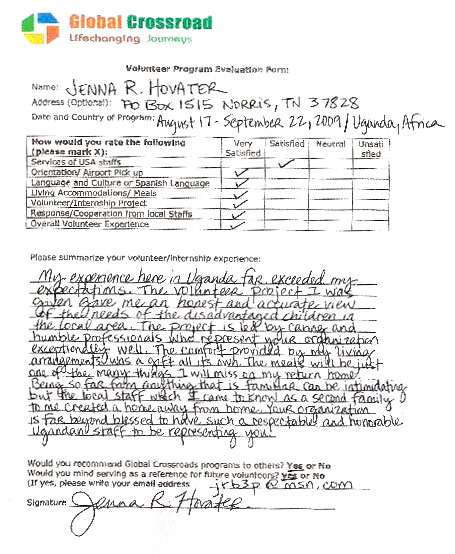 Global Crossroad
Lifechanging Journeys
Volunteer Program Evaluation Form
Name: JENNA R. HOVATER
Address (Optional): PO BOX 1515 NORRIS, TN 37828
Date and Country of Program: August 17 - September 22, 2009 / Uganda, Africa
How would you rate the following (please mark X): Very Satisfied Satisfied Neutral Unsatisfied
Services of USA staffs ✓
Orientation/ Airport Pick up ✓
Language and Culture or Spanish Language ✓
Living Accommodations/ Meals ✓
Volunteer/Internship Project ✓
Response/Cooperation from local Staffs ✓
Overall Volunteer Experience ✓
Please summarize your volunteer/internship experience:
My experience here in Uganda far exceeded my
expectations. The volunteer project I was
given gave me an honest and accurate view
of the needs of the disadvantaged children in
the local area. The project is led by caring and
humble professionals who represent your organization
exceptionally well. The comfort provided by my living
arrangements was a gift all its own. The meals will be just
one of the many things I will miss on my return home.
Being so far from anything that is familiar can be intimidating
but the local staff which I came to know as a second family
to me created a home away from home. Your organization
is far beyond blessed to have such a respectable and honorable
Ugandan staff to be representing you!
Would you recommend Global Crossroads programs to others? Yes or No
Would you mind serving as a reference for future volunteers? Yes or No
(If yes, please write your email address jrb3p@msn.com
Signature: Jenna R. Hovater